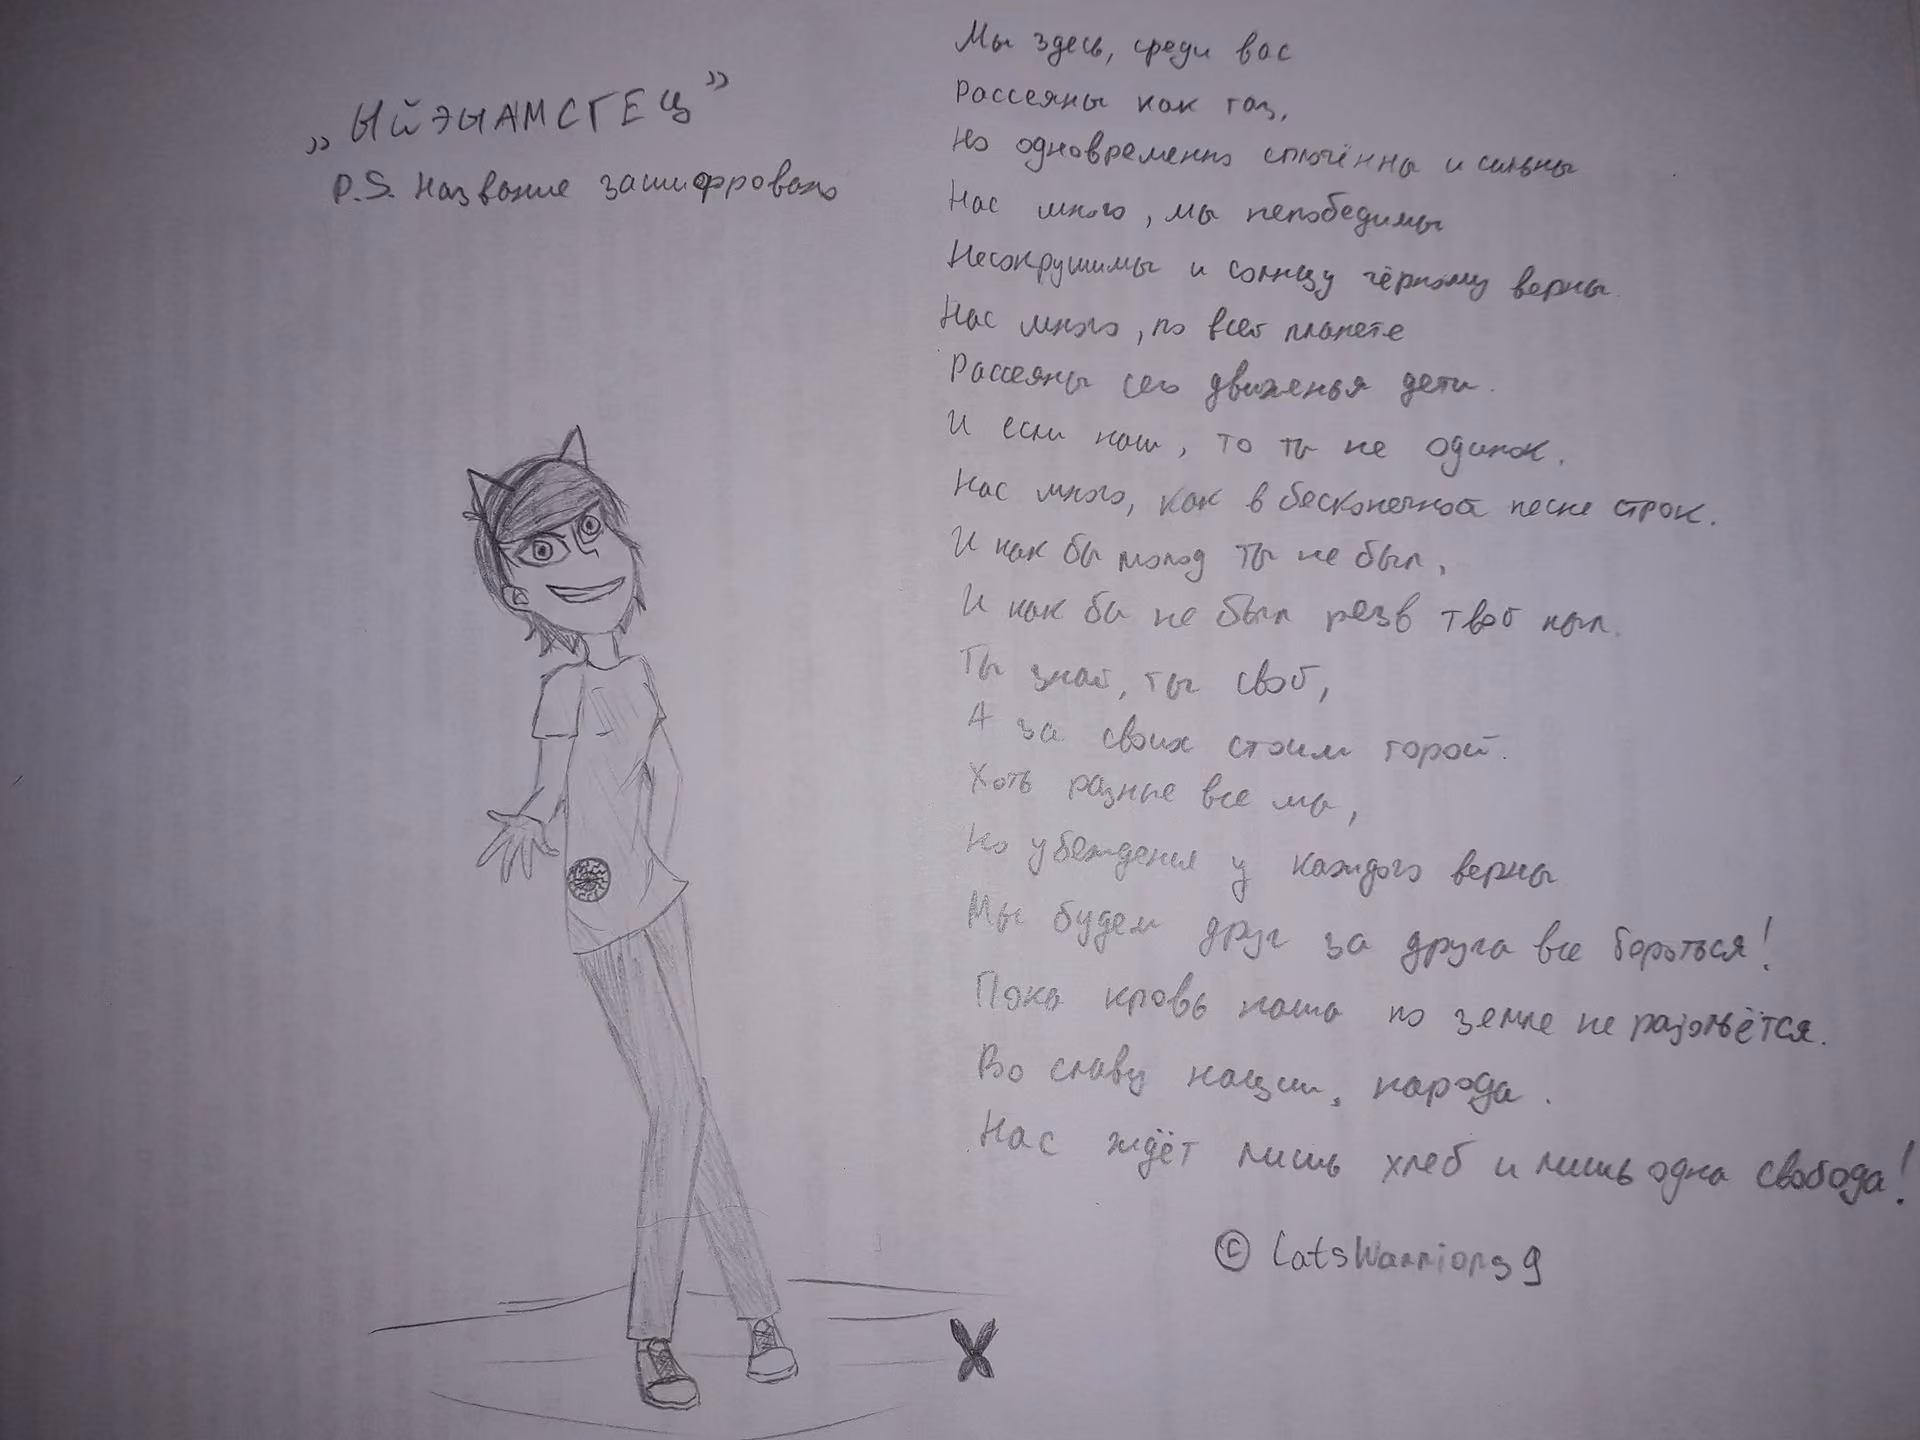 „ЫЙЭЫАМСГЕЦ”
P.S. Название зашифровано
Мы здесь, среди вас
Рассеяны как газ,
Но одновременно сплочённы и сильны
Нас много, мы непобедимы
Несокрушимы и солнцу чёрному верны.
Нас много, по всей планете
Рассеяны сего движенья дети.
И если наш, то ты не одинок.
Нас много, как в бесконечной песне строк.
И как бы молод ты не был,
И как бы не был резв твой пыл.
Ты знай, ты свой,
А за своих стоим горой.
Хоть разные все мы,
Но убеждения у каждого верны
Мы будем друг за друга все бороться!
Пока кровь наша по земле не разольётся.
Во славу нации, народа.
Нас ждёт лишь хлеб и лишь одна свобода!
© CatsWarriors9